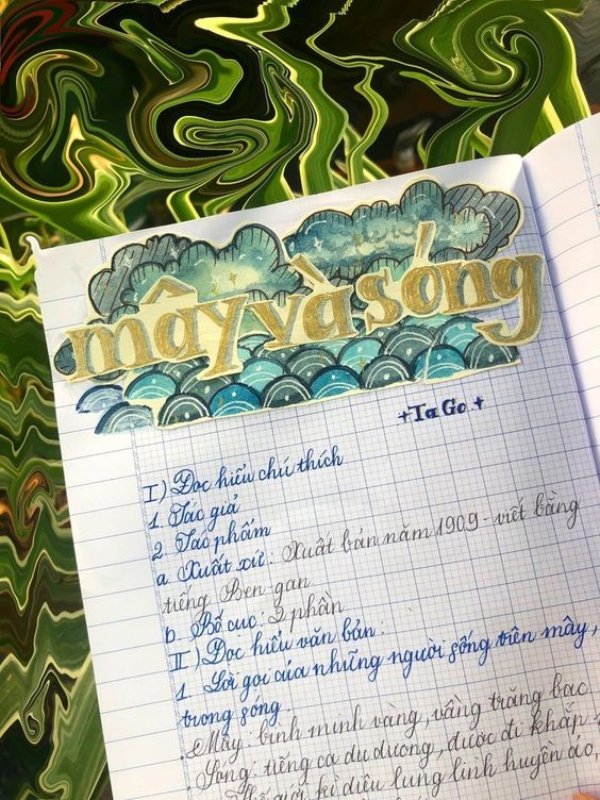 mây và sóng
+Ta Go +
I) Đọc hiểu chú thích
1. Tác giả
2. Tác phẩm
a. Xuất xứ: Xuất bản năm 1909 - viết bằng
tiếng Ben-gan
b. Bố cục: 2 phần
II) Đọc hiểu văn bản:
1. Lời gọi của những người sống trên mây,
trong sóng.
. Mây: bình minh vàng, vầng trăng bạc
. Sóng: tiếng ca du dương, được đi khắp
Thế giới kì diệu lung linh huyền ảo,